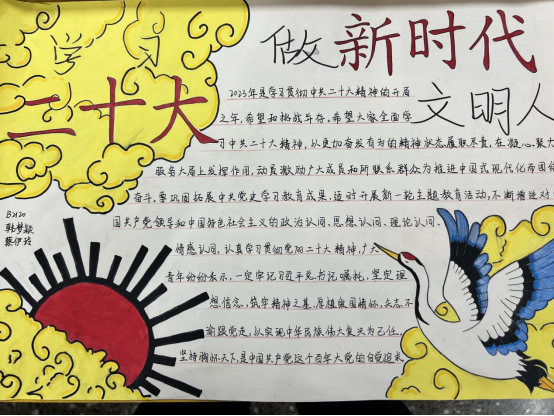 学习
二十大
做新时代
文明人
2023年是学习贯彻中共二十大精神的开展
之年,希望和挑战并存,希望大家全面学
习中共二十大精神,以更加奋发有为的精神状态履职尽责,在凝心聚
服务大局上发挥作用,动员激励广大成员和所联系群众为推进中国式现代化而团
奋斗,要巩固拓展中共党史学习教育成果,适时开展新一轮主题教育活动,不断增进对
国共产党领导和中国特色社会主义的政治认同、思想认同、理论认同、
情感认同,认真学习贯彻党的二十大精神,广大
青年纷纷表示,一定牢记习近平总书记嘱托,坚定理
想信念,筑牢精神之基,厚植爱国情怀,矢志不
渝跟党走,以实现中华民族伟大复兴为己任,
坚持胸怀天下,是中国共产党这个百年大党的自觉追求
B2120